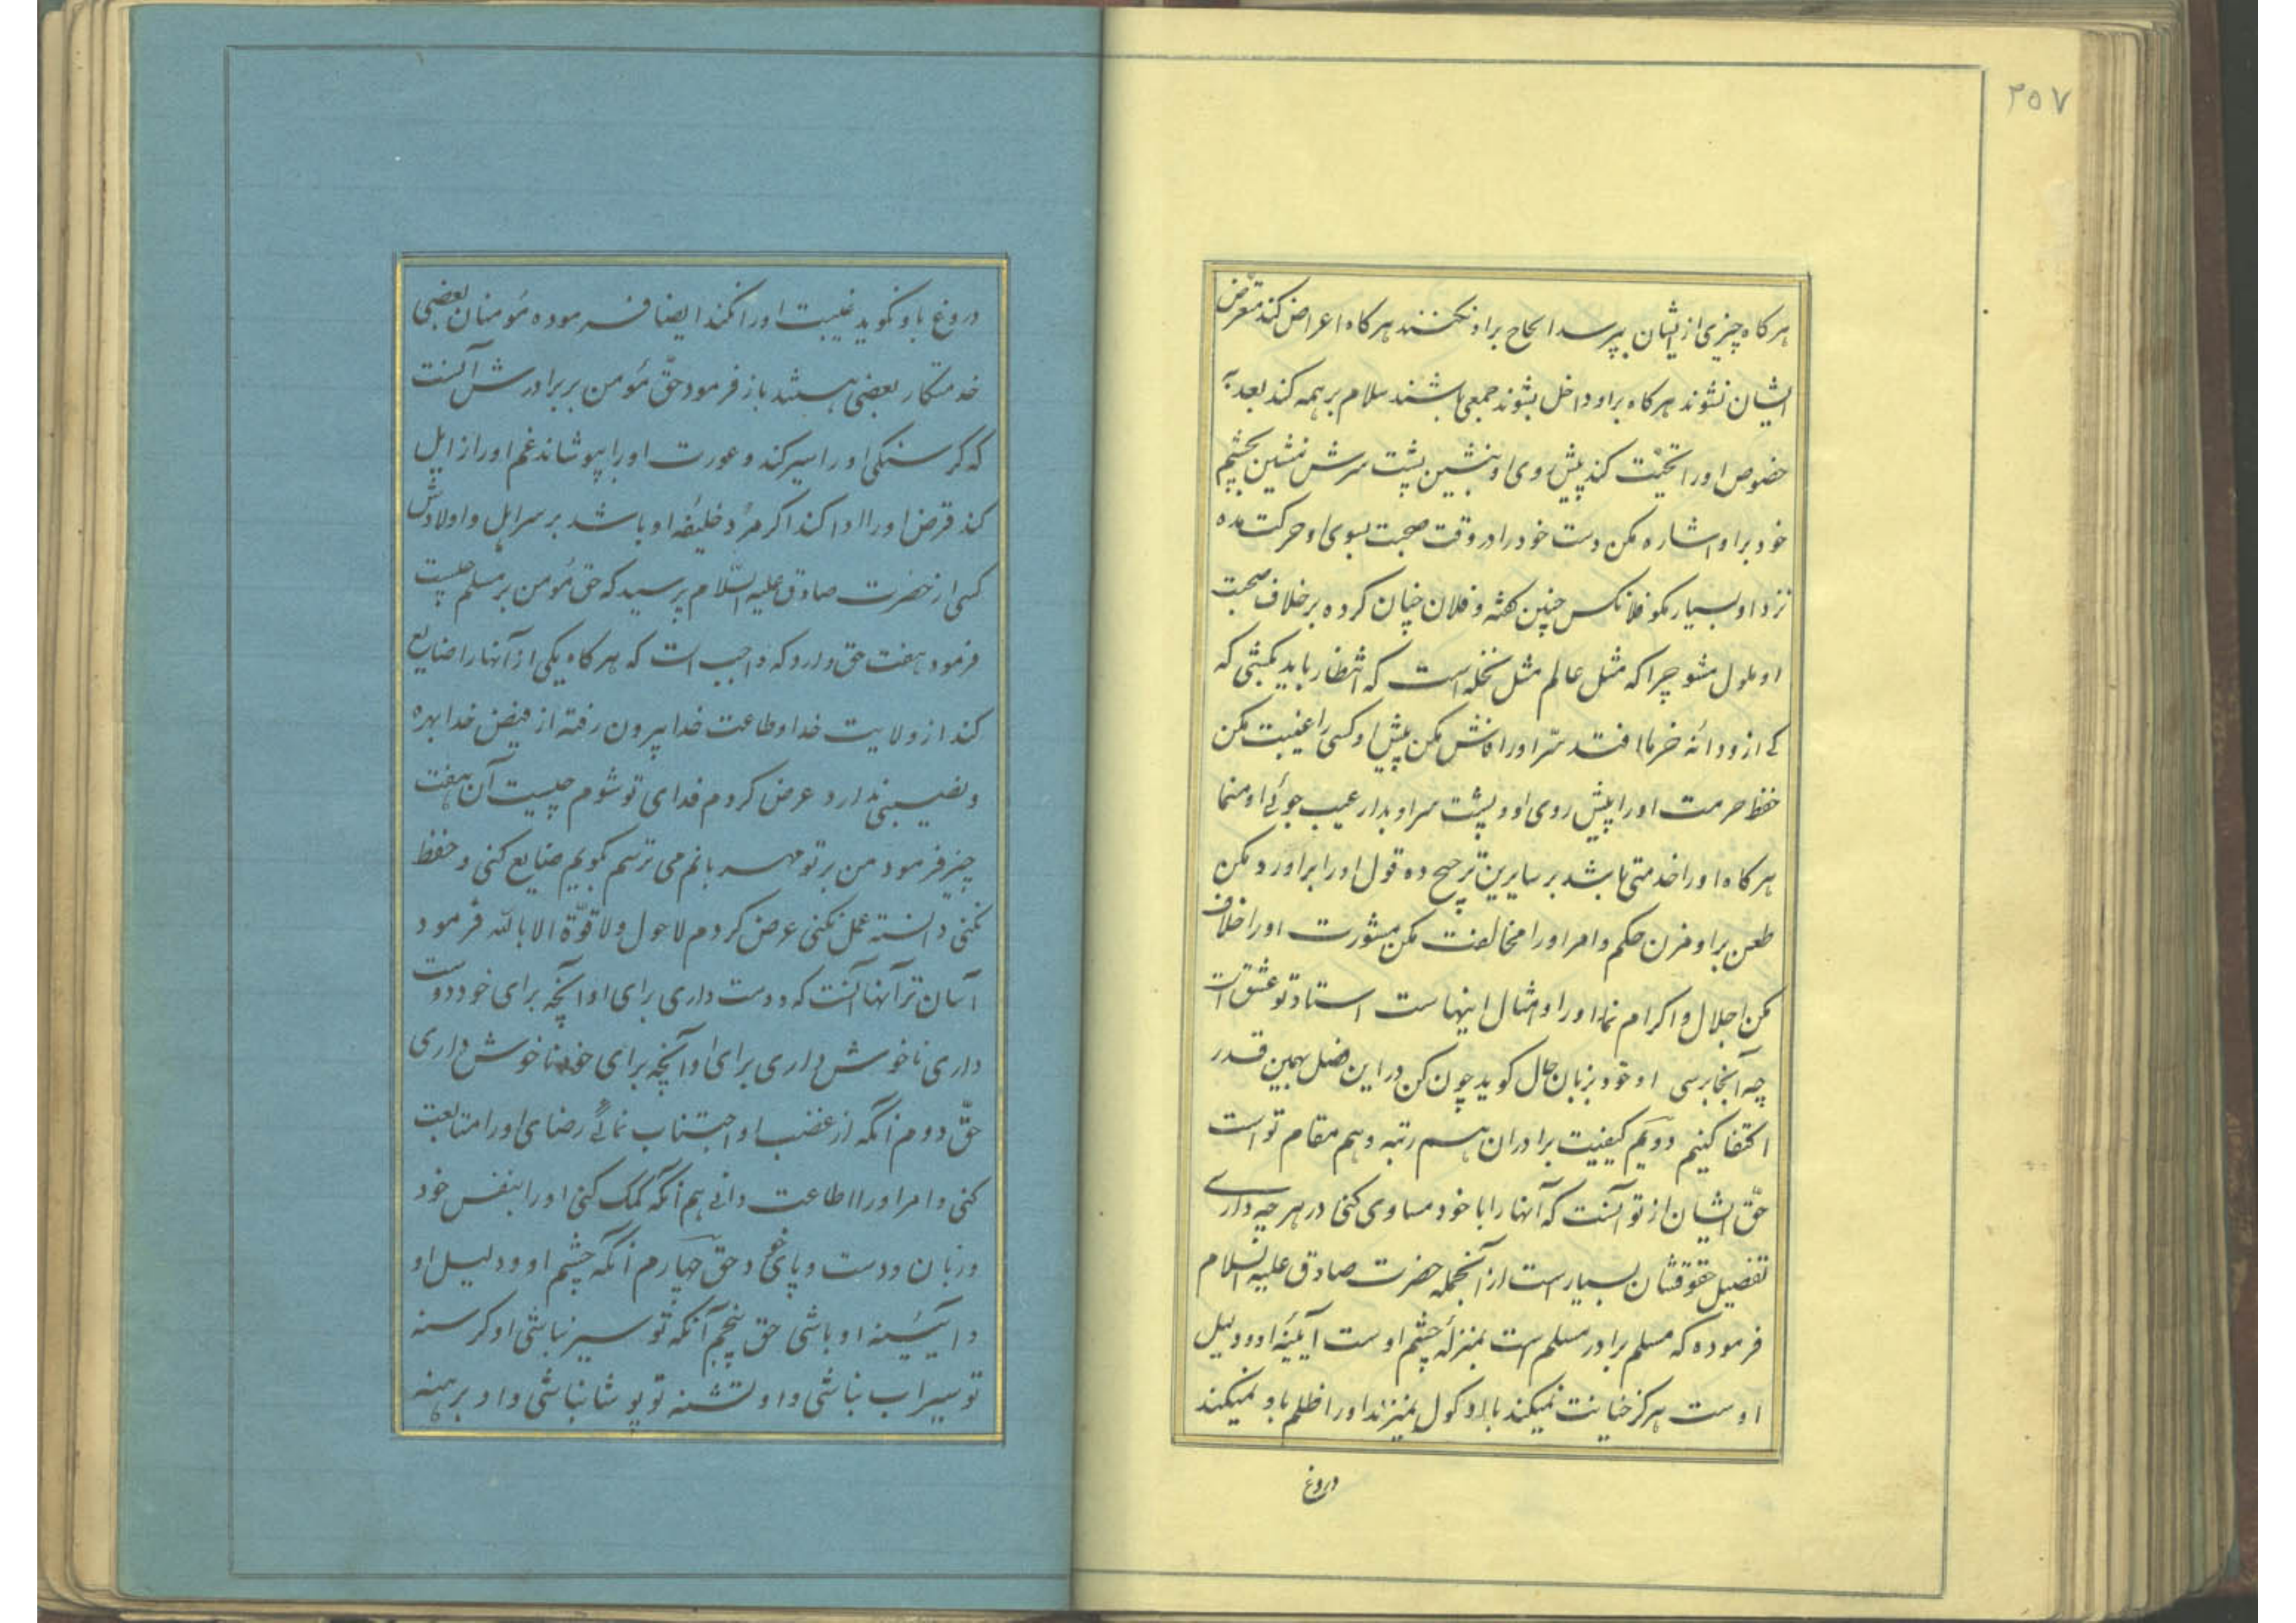 ۳۵۷
هرکاه چیزی از ایشان بپرسد الحاح براو نکنند هرکاه اعراض کند متعرّض
ایشان نشوند هرکاه براو داخل بشوند جمعی باشند سلام بر همه کند بعد به
خصوص اورا تحیّت کند پیش روی او بنشین پشت سرش منشین بچشم
خود براو اشاره مکن دست خود را در وقت صحبت بسوی او حرکت مده
نزد او بسیار مکو فلانکس چنین کفته و فلان چنان کرده برخلاف صحبت
او ملول مشو چرا که مثل عالم مثل نخله است که انتظار باید بکشی که
کے از و دانه خرما افتد سّر اورا فاش مکن پیش او کسی را غیبت مکن
حفظ حرمت اورا پیش روی او و پشت سر او بدار عیب جوئے او منما
هرکاه اورا خدمتی باشد بر سایرین ترجیح ده قول اورا براو رد مکن
طعن براو مزن حکم و امر اورا مخالفت مکن مشورت اورا خلاف
مکن اجلال و اکرام نما اورا و امثال اینهاست استاد تو عشق است
چه آنجا برسی او خود بزبان حال کوید چون کن در این فصل بهمین قدر
اکتفا کنیم دویّم کیفیت برادران هم رتبه و هم مقام تو است
حقّ ایشان از تو آنست که آنها را با خود مساوی کنی در هر چه داری
تفصیل حقوقشان بسیار است از آنجمله حضرت صادق علیه السلام
فرموده که مسلم برادر مسلم است بمنزلهٔ چشم اوست آیینهٔ او و دلیل
اوست هرکز خیانت نمیکند با او کول نمیزند اورا ظلم باو نمیکند
دروغ
دروغ باو نکوید غیبت اورا نکند ایضا فرموده مؤمنان بعضی
خدمتکار بعضی هستند باز فرمود حقّ مؤمن بر برادرش آنست
که کرسنکی اورا سیر کند و عورت اورا بپوشاند غم اورا زایل
کند قرض اورا ادا کند اکر مرُد خلیفه او باشد بر سر اهل و اولادش
کسی از حضرت صادق علیه السّلام پرسید که حق مؤمن بر مسلم چیست
فرمود هفت حق دارد که واجب است که هرکاه یکی از آنها را ضایع
کند از ولایت خدا و طاعت خدا بیرون رفته از فیض خدا بهره
و نصیبی ندارد عرض کردم فدای تو شوم چیست آن هفت
چیز فرمود من برتو مهربانم می ترسم بکویم ضایع کنی و حفظ
نکنی دانسته عمل نکنی عرض کردم لا حول ولا قوّة الا بالله فرمود
آسان تر آنها آنست که دوست داری برای او آنچه برای خود دوست
داری ناخوش داری برای او آنچه برای خود ناخوش داری
حقّ دوم آنکه از غضب او اجتناب نمائے رضای اورا متابعت
کنی و امر اورا اطاعت دانے هم آنکه کمک کنی اورا بنفس خود
و زبان و دست و پای خود حقّ چهارم آنکه چشم او و دلیل او
و آیینه او باشی حق پنجم آنکه تو سیر نباشی او کرسنه
تو سیراب نباشی و او تشنه تو پوشا نباشی و او برهنه